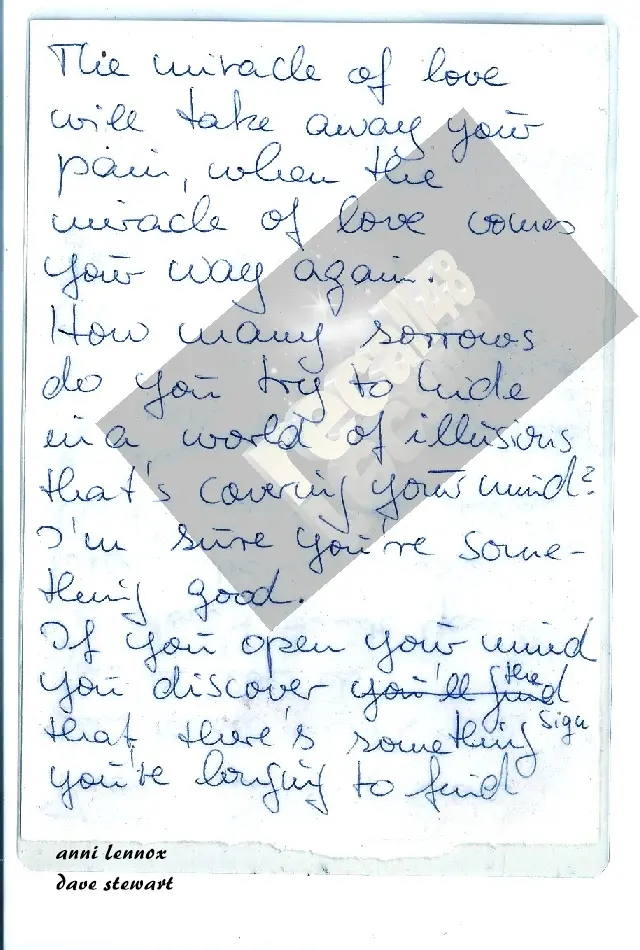 The miracle of love
will take away your
pain, when the
miracle of love comes
your way again.
How many sorrows
do you try to hide
in a world of illusions
that's covering your mind?
I'm sure you're some-
thing good.
If you open your mind
you discover you'll find the
sign
that there's something
you're longing to find
anni Lennox
dave stewart